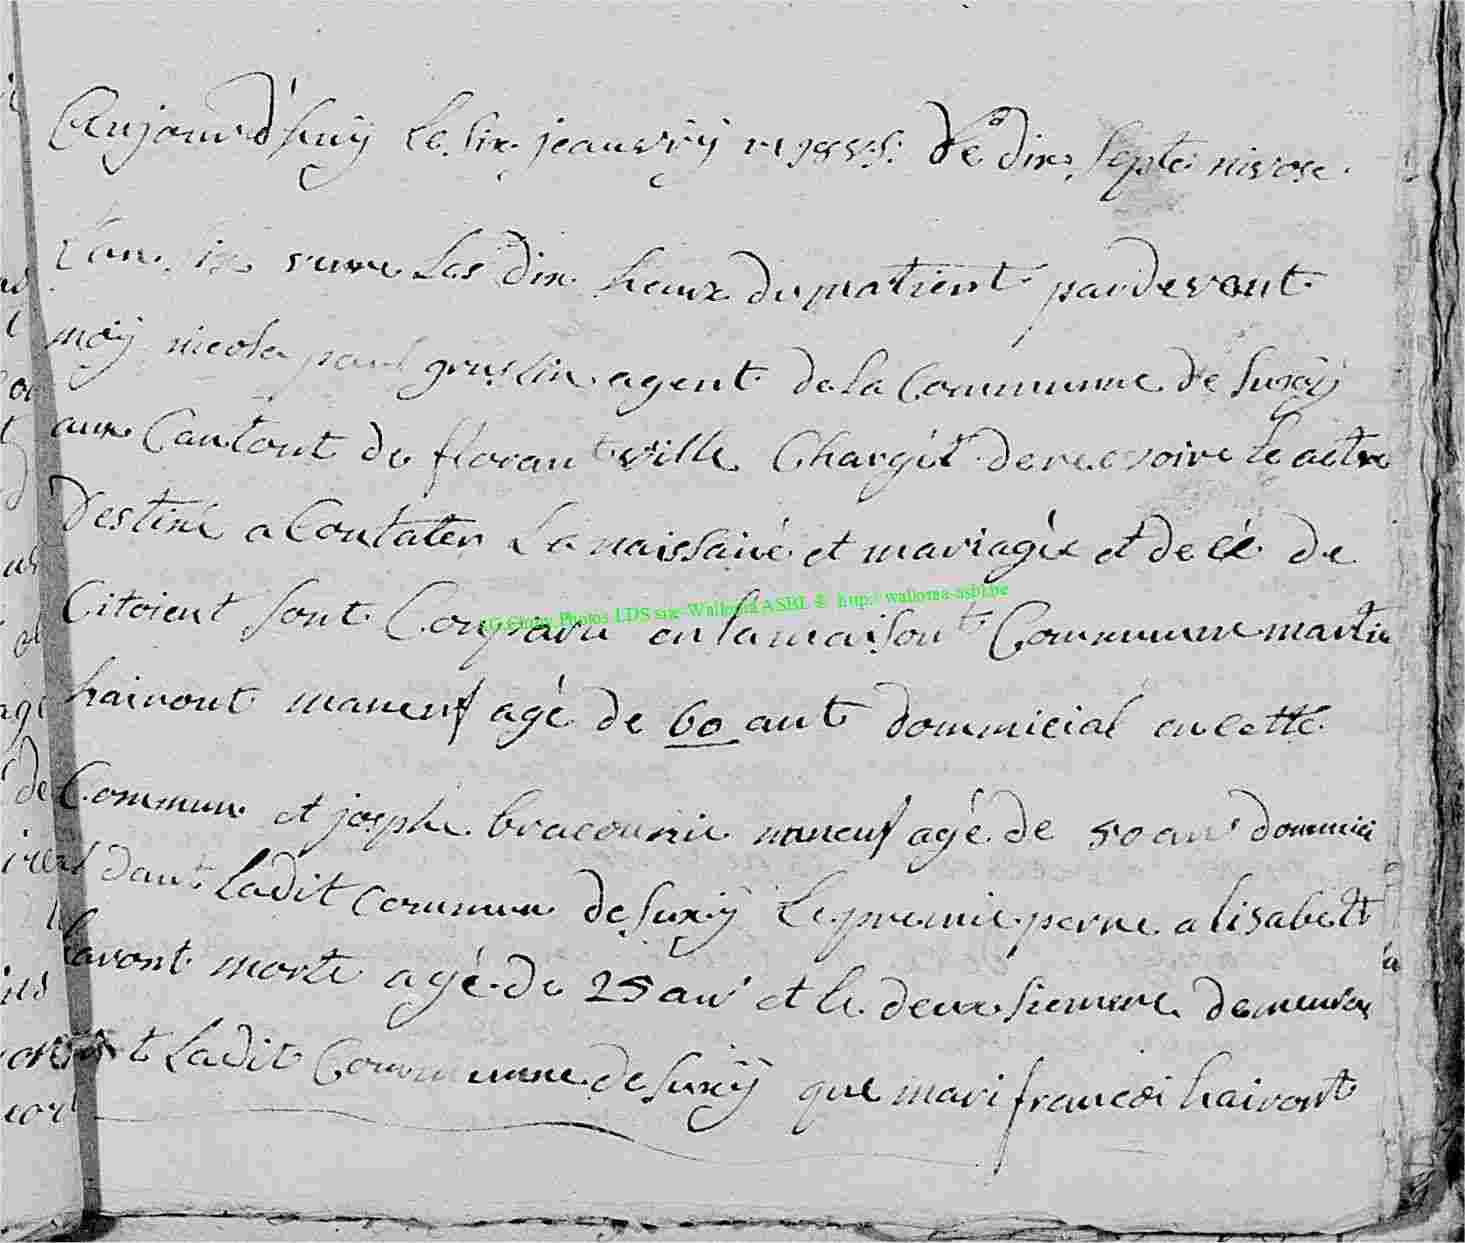 Aujourd'huy le six jeanvÿ le dix septe nivose
L'an six sure les dix heure du matient pardevant
moÿ nicola paul gruslin agent de la Commune de Suxÿ
aux Cantont de florantville Chargét de recevoire le actre
Destiné a Contater la naissainé et mariagée et décé de
Citoient sont Conparu en la maisont Commune martin
hairont maneuf agé de 60 ant dommicial en cette
Commune et josphe braconnie maneuf agé de 50 an dommici
dant ladit Commune de Suxÿ le premie perre a lisabett
havont morte agé de 25 an et le deuxsiemme demeuran
t ladit Commune de Suxÿ que mari francoi hairont
AG Geneo Photos LDS sue-Wallonia ASBL © http://wallonia-asbl.be